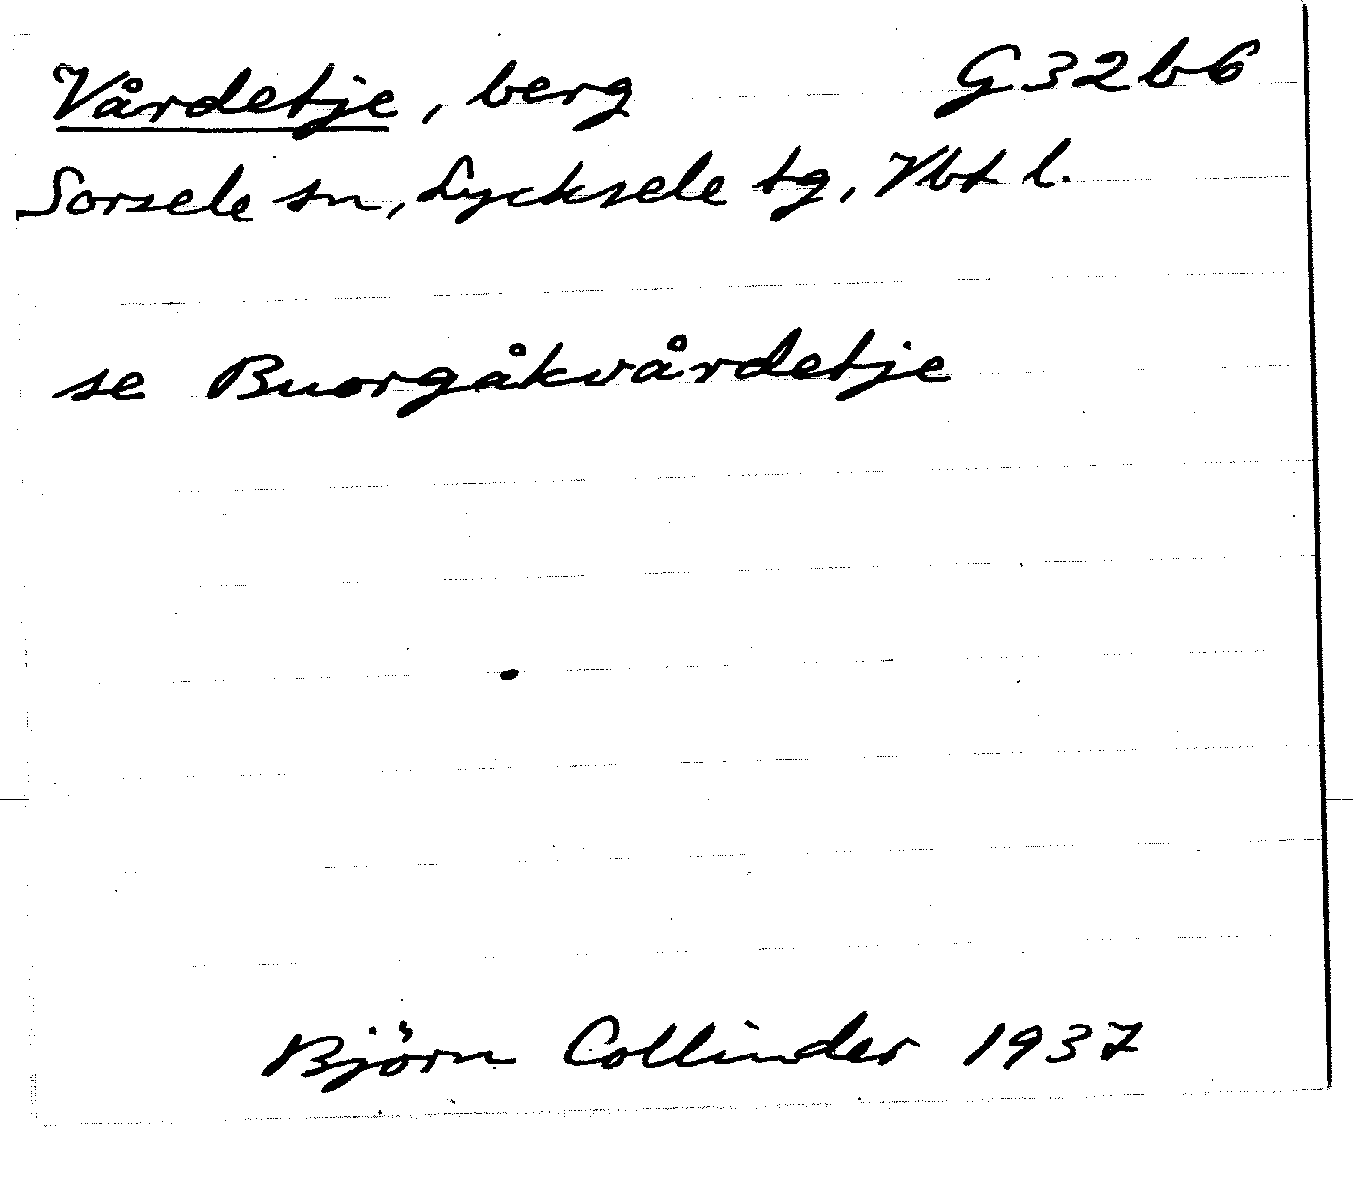 Vårdetje, berg G32b6
Sorsele sn, Lycksele tg, Vbt l.
se Buorgåkvårdetje
Björn Collinder 1937